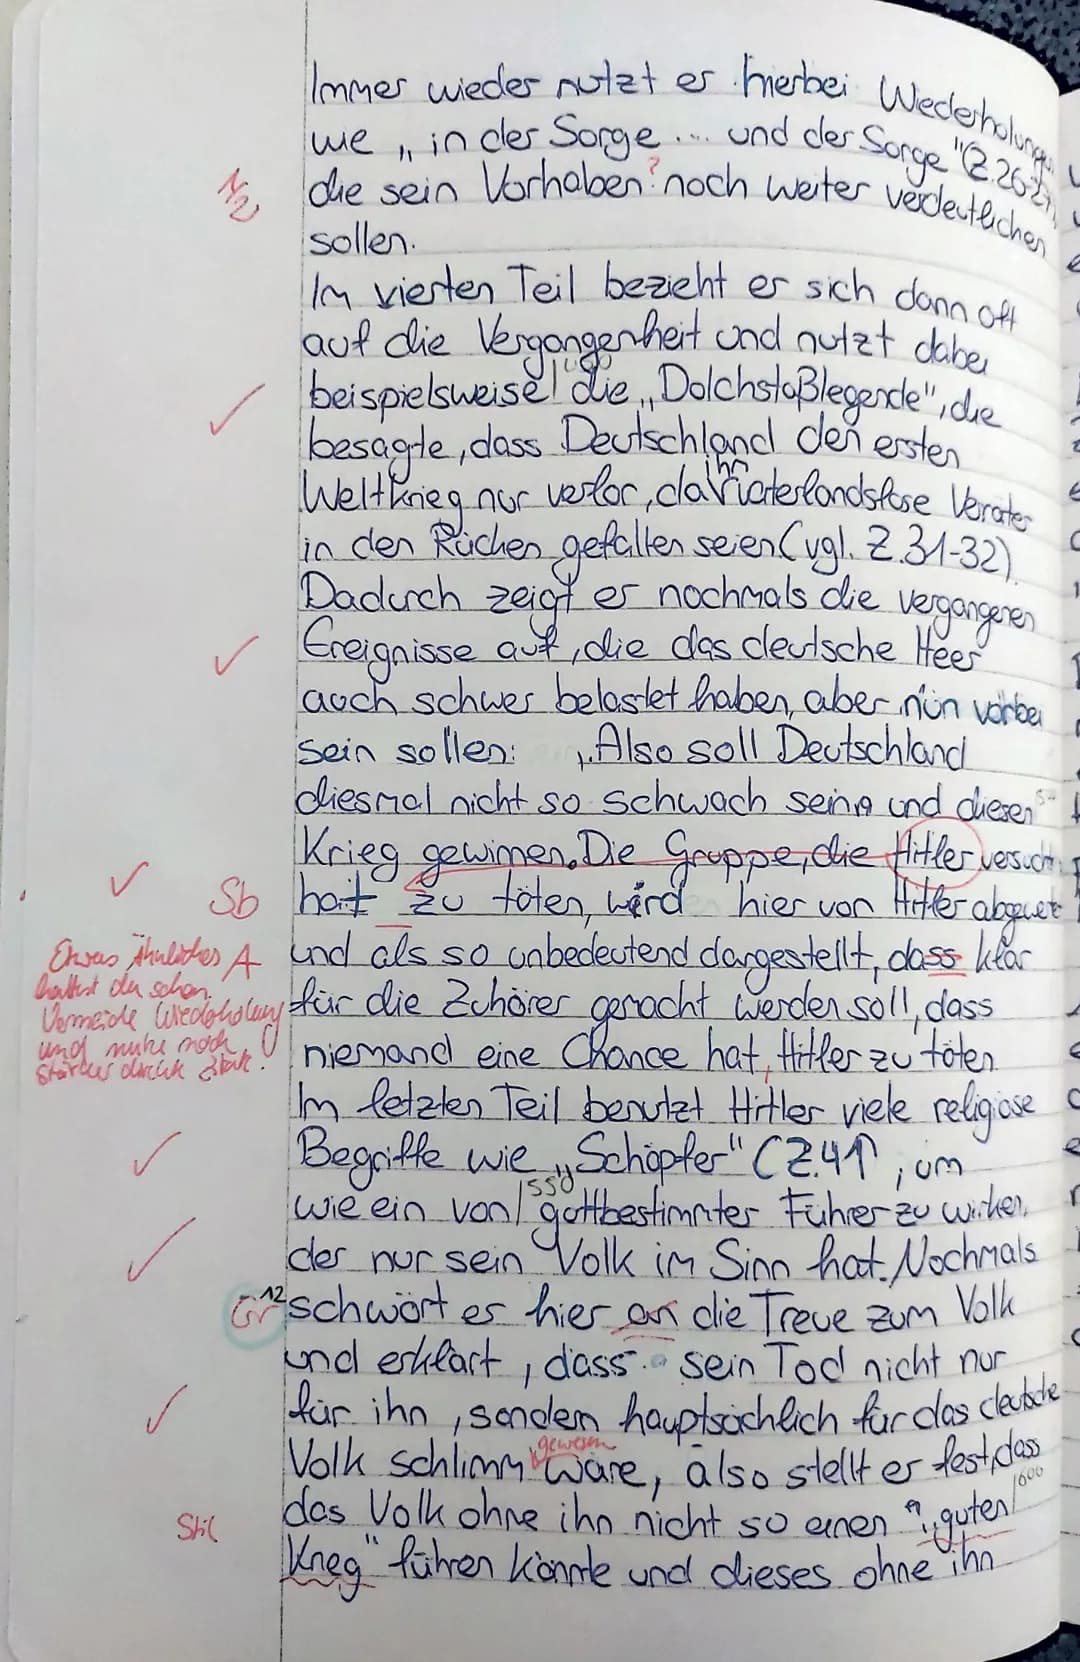 Immer wieder nutzt er hierbei Wiederholungen
wie „in der Sorge .... und der Sorge" (Z.26-27),
die sein Vorhaben ? noch weiter verdeutlichen
sollen.
Im vierten Teil bezieht er sich dann oft
auf die Vergangenheit und nutzt dabei
beispielsweise die „Dolchstoßlegende", die
✓
besagte, dass Deutschland den ersten
Weltkrieg nur verlor, da ihn Vaterlandslose Verräter
in den Rücken gefallen seien (vgl. Z.31-32).
Dadurch zeigt er nochmals die vergangenen
✓ Ereignisse auf, die das deutsche Heer
auch schwer belastet haben, aber nun vorbei
sein sollen: Also soll Deutschland
diesmal nicht so schwach sein und diesen
Krieg gewinnen. Die Gruppe, die Hitler versucht
✓
Sb hat zu töten, wird hier von Hitler abgewertet
A und als so unbedeutend dargestellt, dass klar
Etwas Ähnliches
hattest du schon.
Vermeide Wiederholung
und nutze noch
stärker direkte Zitate!
für die Zuhörer gemacht werden soll, dass
niemand eine Chance hat, Hitler zu töten.
Im letzten Teil benutzt Hitler viele religiöse
✓ Begriffe wie „Schöpfer" (Z.41), um
550
wie ein von gottbestimmter Führer zu wirken,
✓ der nur sein Volk im Sinn hat. Nochmals
Gr 12 schwört er hier an die Treue zum Volk
und erklärt, dass sein Tod nicht nur
✓ für ihn, sondern hauptsächlich für das deutsche
Volk schlimm gewesen wäre, also stellt er fest, dass
600
Stil das Volk ohne ihn nicht so einen „guten
Krieg" führen könnte und dieses ohne ihn